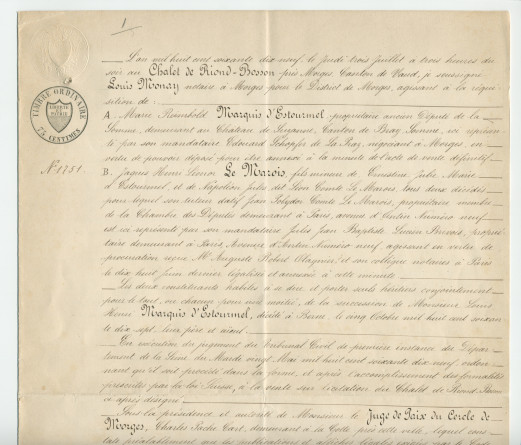 1
TIMBRE ORDINAIRE
LIBERTÉ ET PATRIE
75 CENTIMES
N° 1751
L'an mil huit cent soixante dix neuf, le jeudi trois juillet à trois heures du
soir au Chalet de Riond-Bosson près Morges Canton de Vaud, je soussigné
Louis Monay notaire à Morges pour le District de Morges, agissant à la réqui-
sition de :
A. Marie Reinhold Marquis d'Estourmel propriétaire ancien Député de la
Somme, demeurant au Château de Canton de Bray, Somme, ici repré-
senté par son mandataire Edouard de La négociant à Morges, en
vertu de pouvoir déposé pour être annexé à la minute de l'acte de vente définitif
B. Jaques Henri Le Marois, fils mineur de Marie
d'Estourmel, et de Napoléon Jules Comte Le Marois, tous deux décédés
pour lequel son tuteur datif Jean Polydor Comte Le Marois, propriétaire membre
de la Chambre des Députés demeurant à Paris, avenue d'Antin Numéro neuf
est ici représenté par son mandataire Jules Jean Baptiste Lucien proprié-
taire demeurant à Paris, Avenue d'Antin Numéro neuf, agissant en vertu de
procuration reçue Mr Auguste Robert et son collègue notaires à Paris
le dix huit juin dernier légalisée et annexée à cette minute.
Les deux constituants habiles à se dire et porter seuls héritiers conjointement
pour le tout, ou chacun pour une moitié, de la succession de Monsieur Louis
Henri Marquis d'Estourmel, décédé à Berne, le cinq Octobre mil huit cent soixan-
te dix sept, leur père et aïeul.
En exécution du jugement du Tribunal Civil de première instance du Dépar-
tement de la Seine du Mardi vingt Mai mil huit cent soixante dix neuf, ordon-
nant qu'il soit procédé dans la forme, et après l'accomplissement des formalités
prescrites par la loi Suisse, à la vente sur licitation du Chalet de Riond Bosson
ci après désigné.
Sous la présidence et autorité de Monsieur le Juge de Paix du Cercle de
Morges, Charles demeurant à la près cette ville, lequel cons-
tate préalablement que les publications et affiches